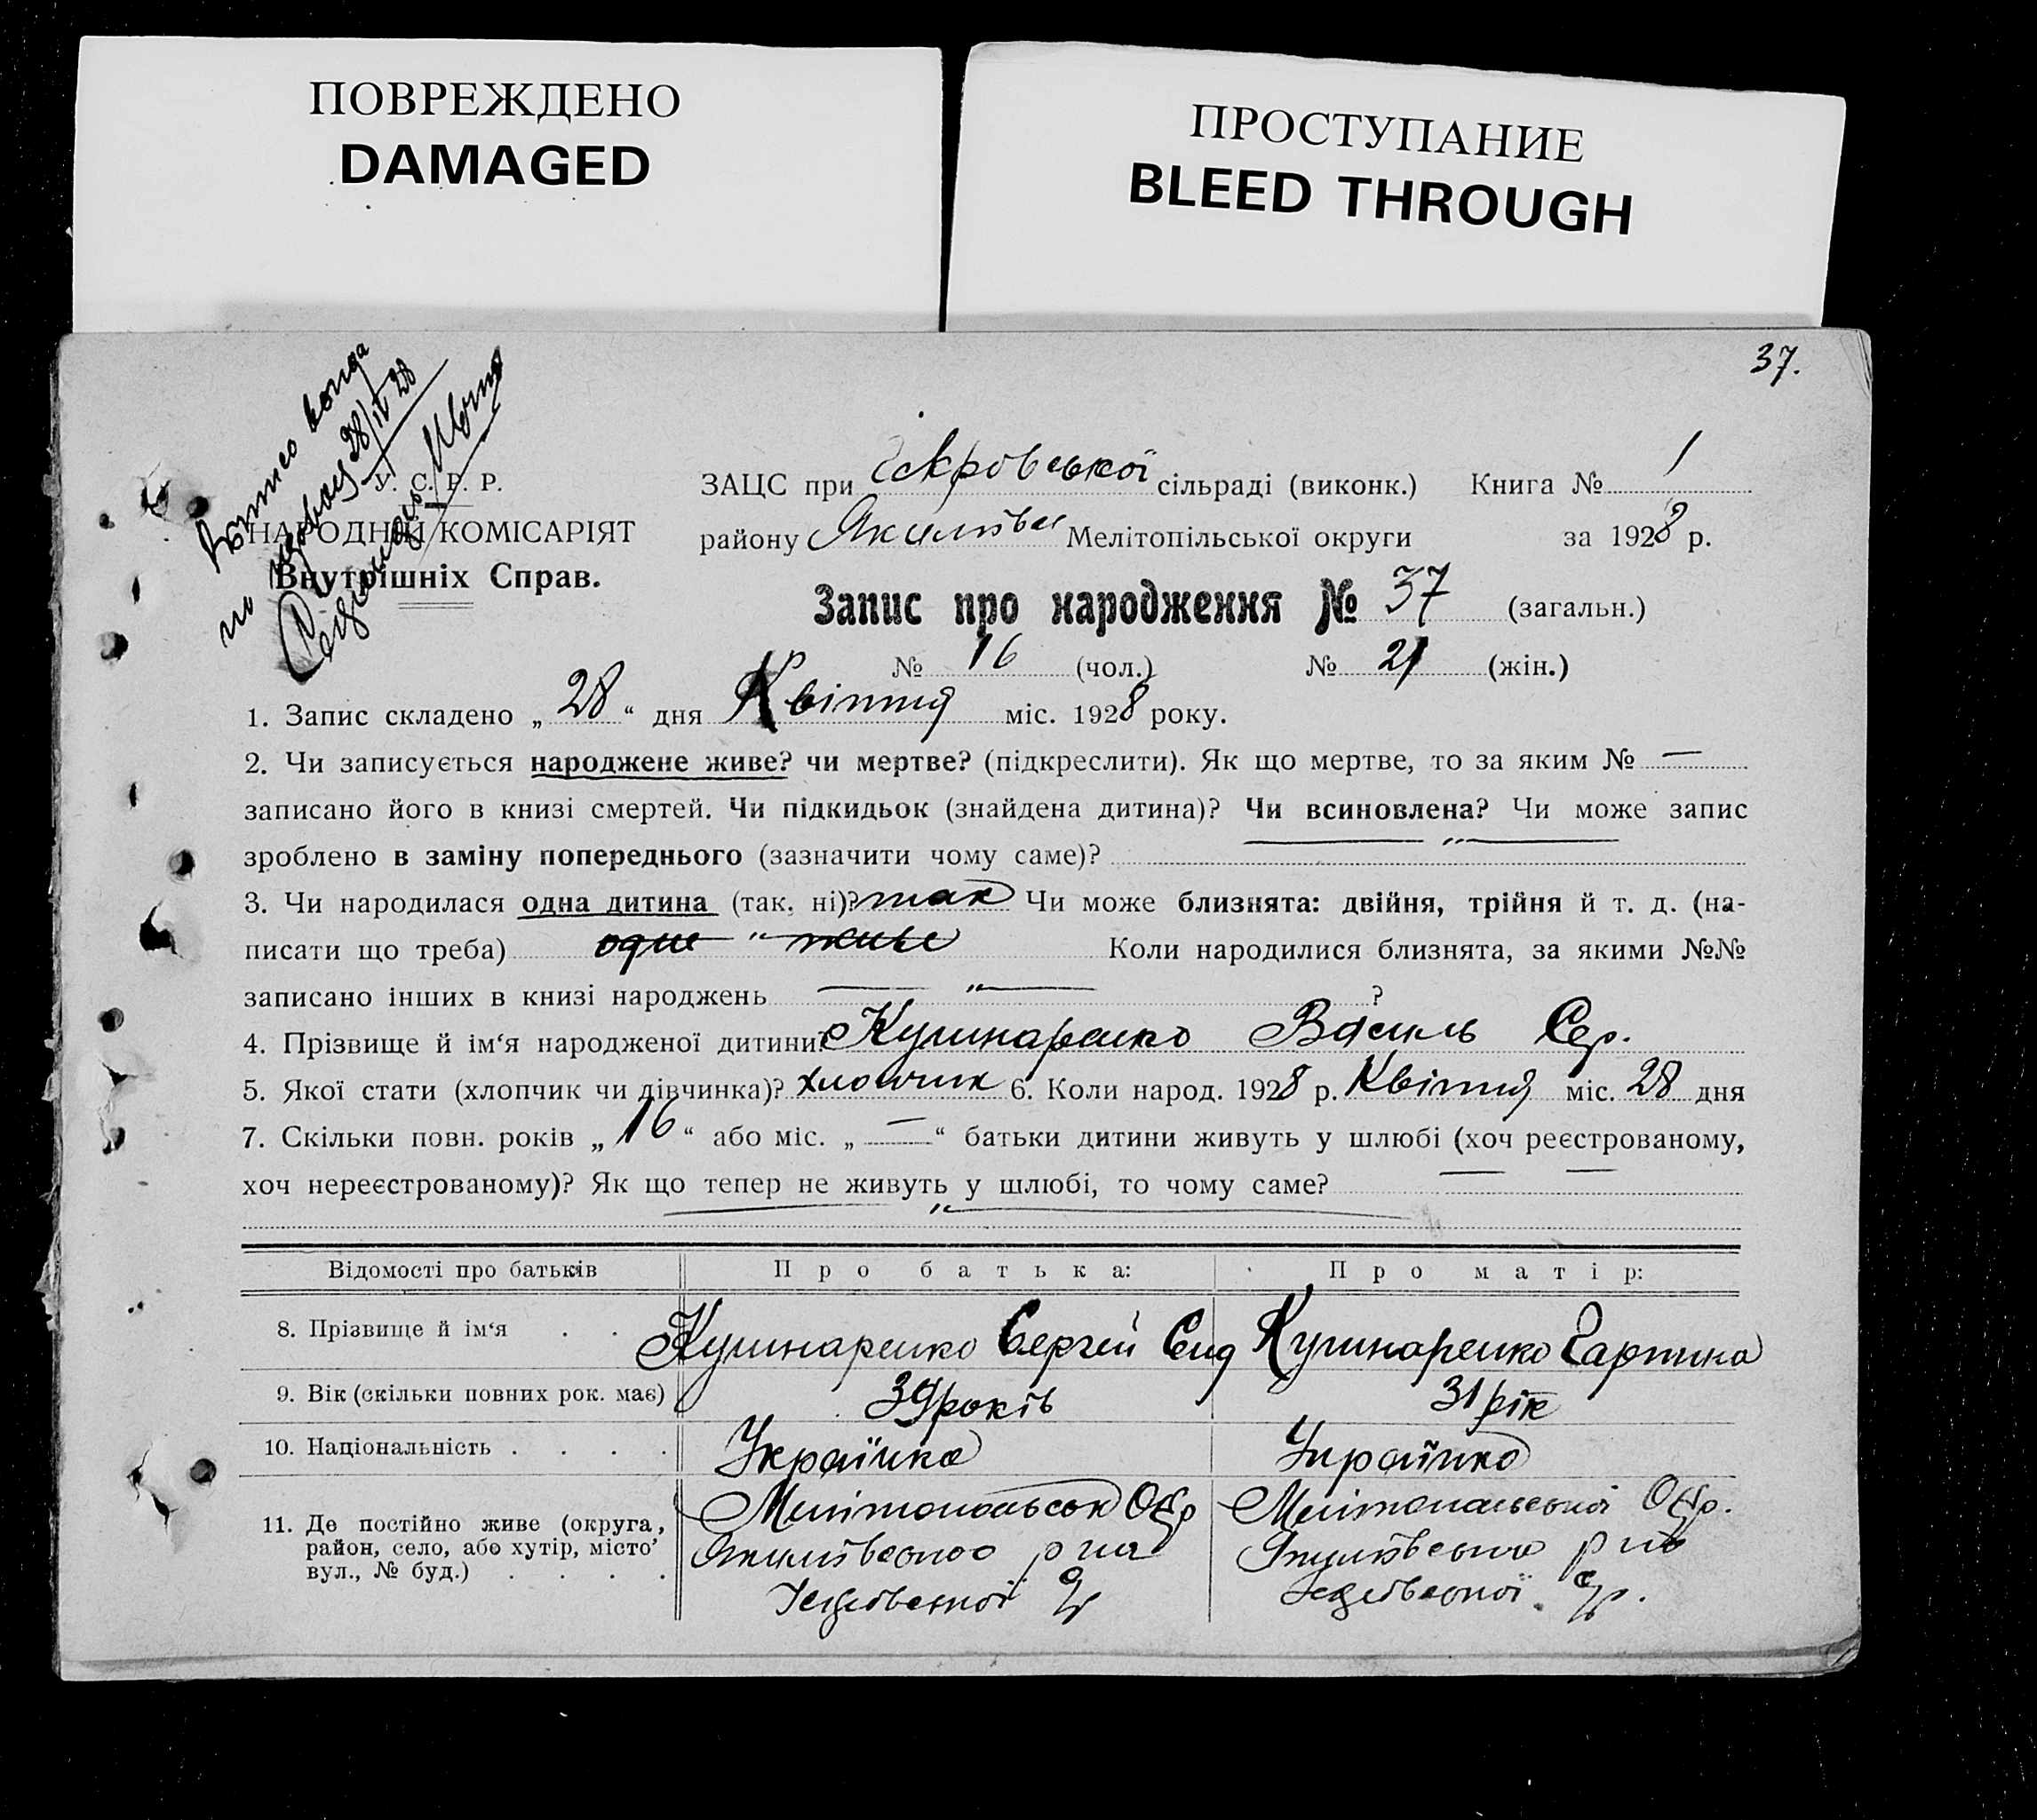 ПОВРЕЖДЕНО
DAMAGED
ПРОСТУПАНИЕ
BLEED THROUGH
37.
28/IV 28
У. С. Р. Р.
НАРОДНИЙ КОМІСАРІЯТ
Внутрішніх Справ.
ЗАЦС при сільраді (виконк.) Книга № 1
району Мелітопільської округи за 1928 р.
Запис про народження № 37 (загальн.)
№ 16 (чол.) № 21 (жін.)
1. Запис складено „ 28 “ дня Квітня міс. 1928 року.
2. Чи записується народжене живе? чи мертве? (підкреслити). Як що мертве, то за яким № —
записано його в книзі смертей. Чи підкидьок (знайдена дитина)? Чи всиновлена? Чи може запис
зроблено в заміну попереднього (зазначити чому саме)?
3. Чи народилася одна дитина (так, ні)? так Чи може близнята: двійня, трійня й т. д. (на-
писати що треба) одне " живе Коли народилися близнята, за якими №№
записано інших в книзі народжень — " — ?
4. Прізвище й ім‘я народженої дитини? Кушнаренко Василь Сер.
5. Якої стати (хлопчик чи дівчинка)? хлопчик 6. Коли народ. 1928 р. Квітня міс. 28 дня
7. Скільки повн. років „ 16 “ або міс. „ — “ батьки дитини живуть у шлюбі (хоч реєстрованому,
хоч нереєстрованому)? Як що тепер не живуть у шлюбі, то чому саме?
Відомості про батьків Про батька: Про матір:
8. Прізвище й ім‘я . . Кушнаренко Сергей Кушнаренко
9. Вік (скільки повних рок. має) 39 років 31 рік
10. Національність . . . . Українка Українка
11. Де постійно живе (округа, Мелітопольськ Окр Мелітопольської Окр.
район, село, або хутір, місто’
вул., № буд.) . . . .